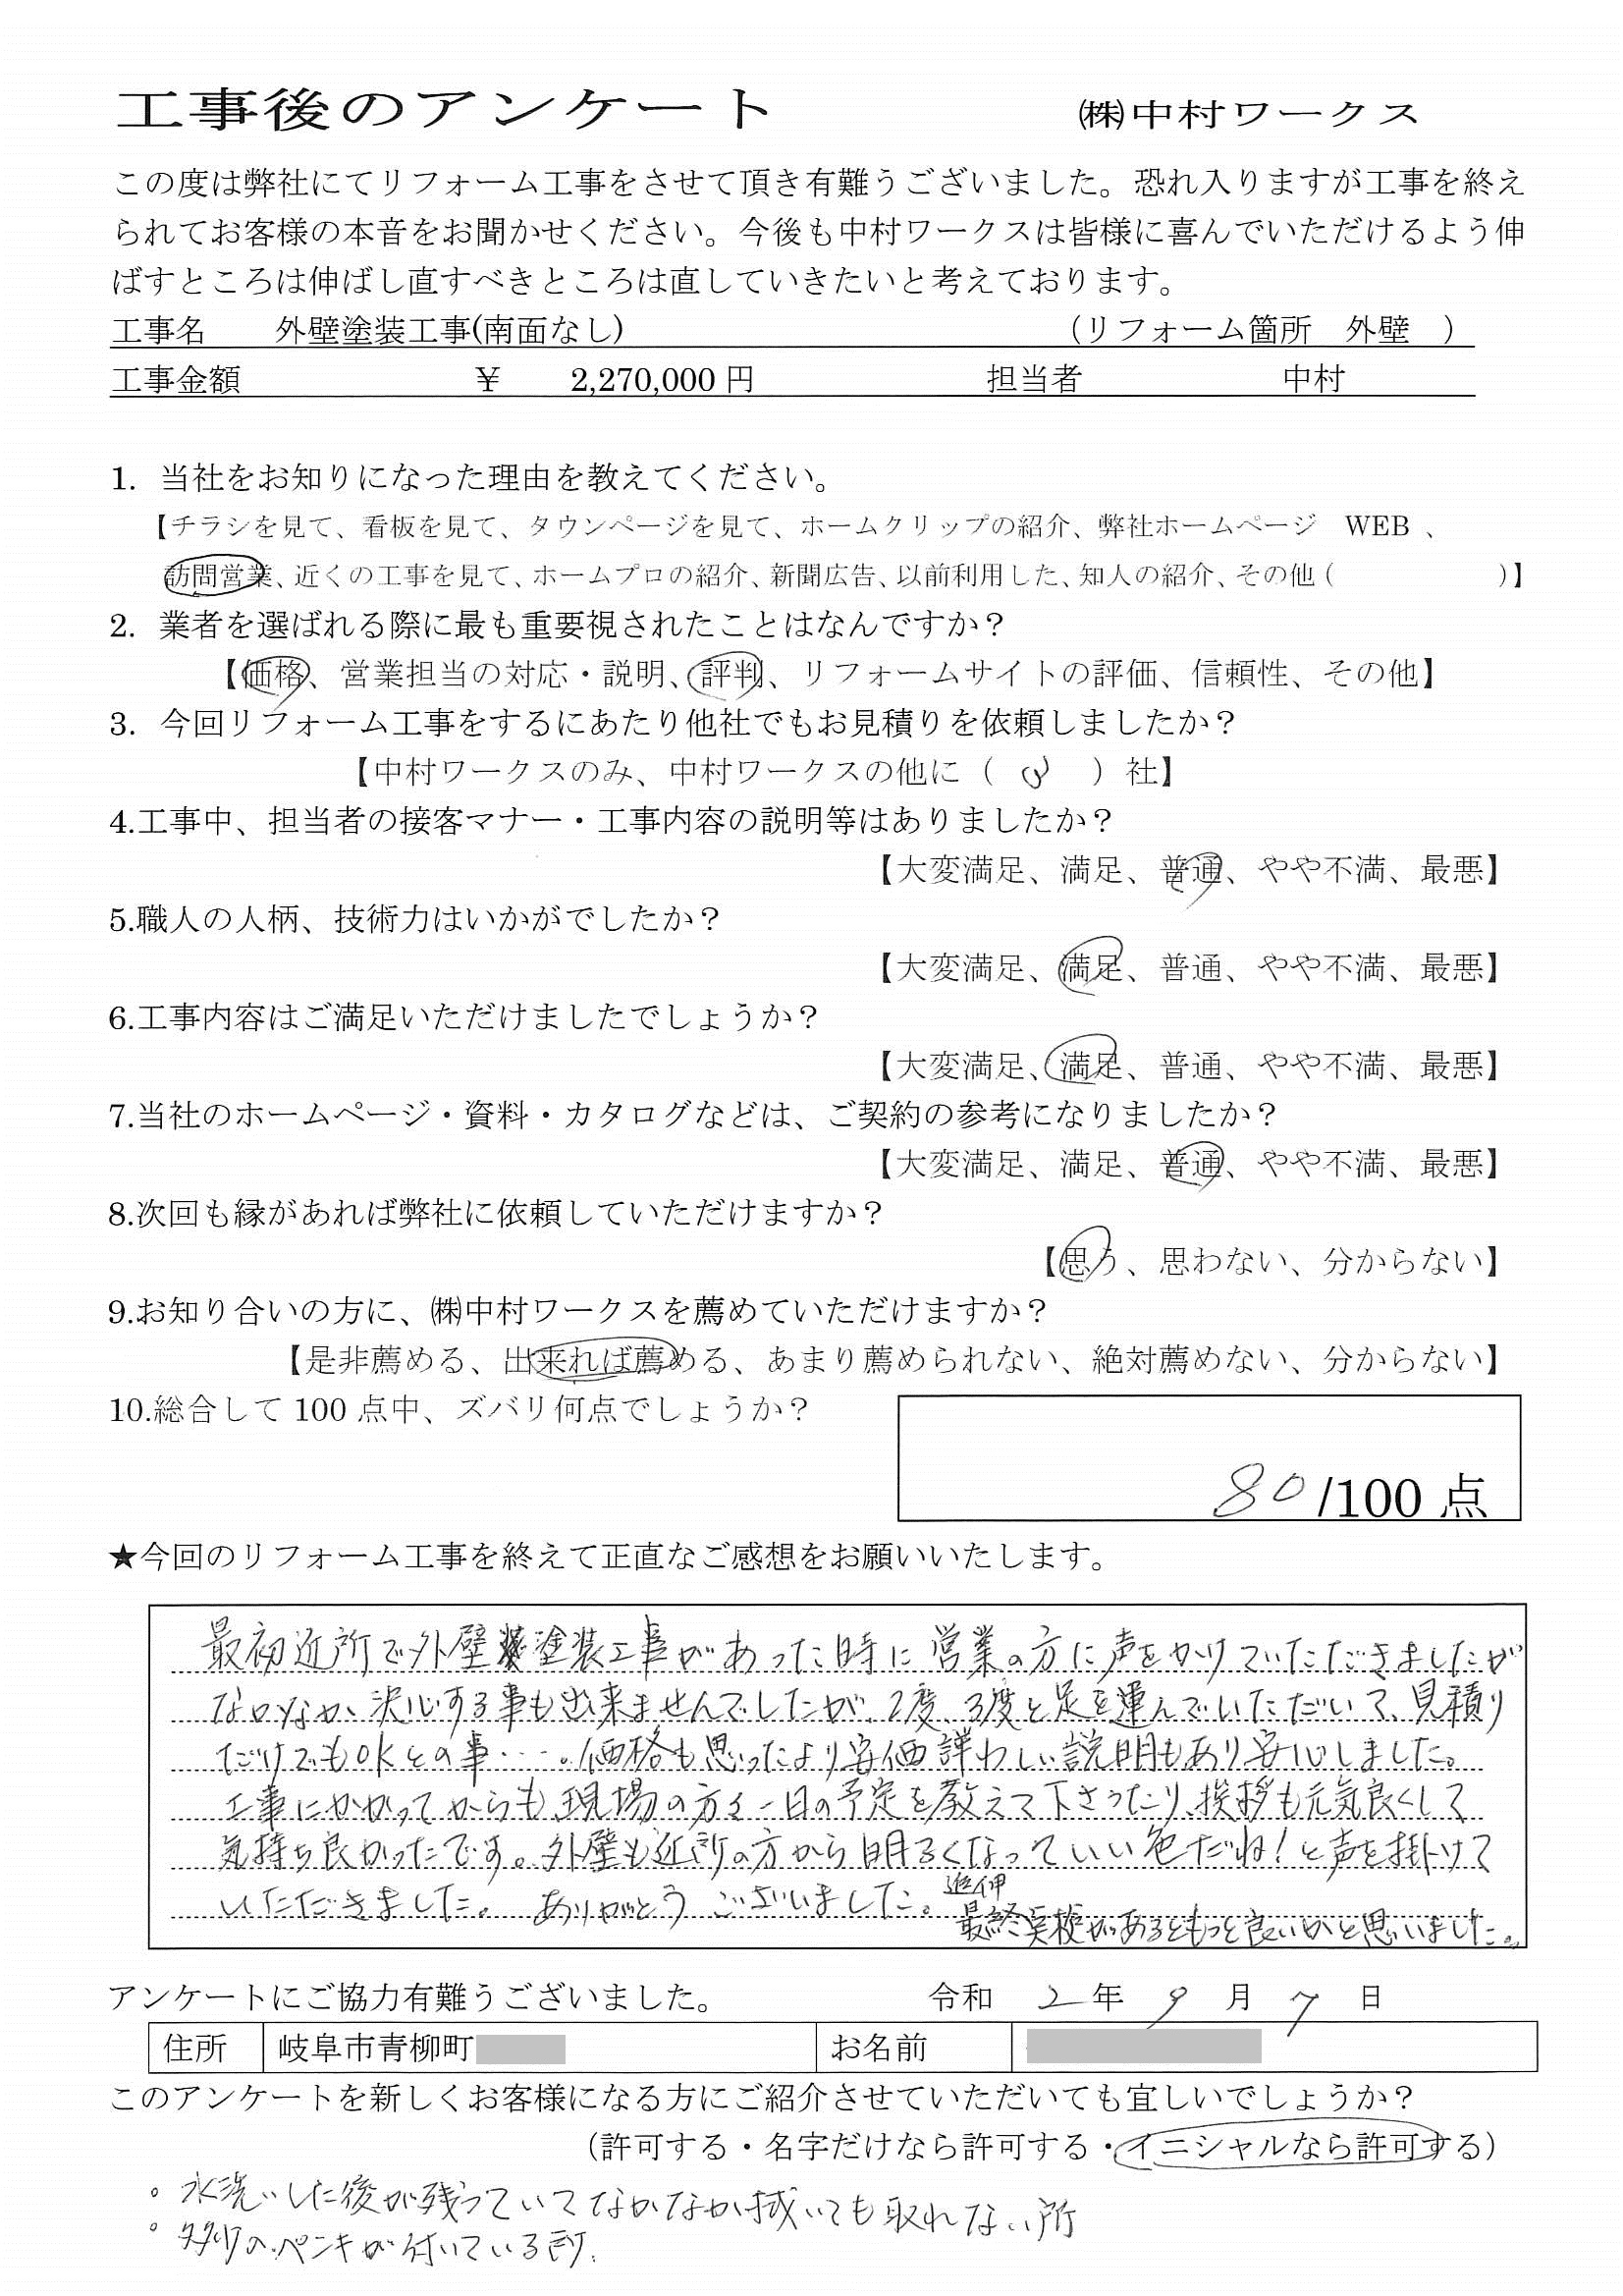 工事後のアンケート ㈱中村ワークス
この度は弊社にてリフォーム工事をさせて頂き有難うございました。恐れ入りますが工事を終え
られてお客様の本音をお聞かせください。今後も中村ワークスは皆様に喜んでいただけるよう伸
ばすところは伸ばし直すべきところは直していきたいと考えております。
工事名 外壁塗装工事(南面なし) （リフォーム箇所 外壁 ）
工事金額 ￥ 2,270,000 円 担当者 中村
1. 当社をお知りになった理由を教えてください。
【チラシを見て、看板を見て、タウンページを見て、ホームクリップの紹介、弊社ホームページ WEB 、
訪問営業、近くの工事を見て、ホームプロの紹介、新聞広告、以前利用した、知人の紹介、その他（ ）】
2. 業者を選ばれる際に最も重要視されたことはなんですか？
【価格、営業担当の対応・説明、評判、リフォームサイトの評価、信頼性、その他】
3. 今回リフォーム工事をするにあたり他社でもお見積りを依頼しましたか？
【中村ワークスのみ、中村ワークスの他に（ ）社】
4.工事中、担当者の接客マナー・工事内容の説明等はありましたか？
【大変満足、満足、普通、やや不満、最悪】
5.職人の人柄、技術力はいかがでしたか？
【大変満足、満足、普通、やや不満、最悪】
6.工事内容はご満足いただけましたでしょうか？
【大変満足、満足、普通、やや不満、最悪】
7.当社のホームページ・資料・カタログなどは、ご契約の参考になりましたか？
【大変満足、満足、普通、やや不満、最悪】
8.次回も縁があれば弊社に依頼していただけますか？
【思う、思わない、分からない】
9.お知り合いの方に、㈱中村ワークスを薦めていただけますか？
【是非薦める、出来れば薦める、あまり薦められない、絶対薦めない、分からない】
10.総合して 100 点中、ズバリ何点でしょうか？
80 /100 点
★今回のリフォーム工事を終えて正直なご感想をお願いいたします。
最初近所で外壁塗装工事があった時に営業の方に声をかけていただきましたが
なかなか決心する事も出来ませんでしたが、2度、3度と足を運んでいただいて、見積り
だけでもOKとの事…。価格も思ったより安価詳わしい説明もあり安心しました。
工事にかかってからも現場の方々一日の予定を教えて下さったり、挨拶も元気良くして
気持ち良かったです。外壁も近所の方から明るくなっていい色だね！と声を掛けて
いただきました。ありがとうございました。
追伸
最終点検があるともっと良いかと思いました。
アンケートにご協力有難うございました。 令和 2 年 9 月 7 日
住所 岐阜市青柳町 お名前
このアンケートを新しくお客様になる方にご紹介させていただいても宜しいでしょうか？
（許可する・名字だけなら許可する・イニシャルなら許可する）
。水洗いした後が残っていてなかなか拭いても取れない所
。のペンキが付いている所。